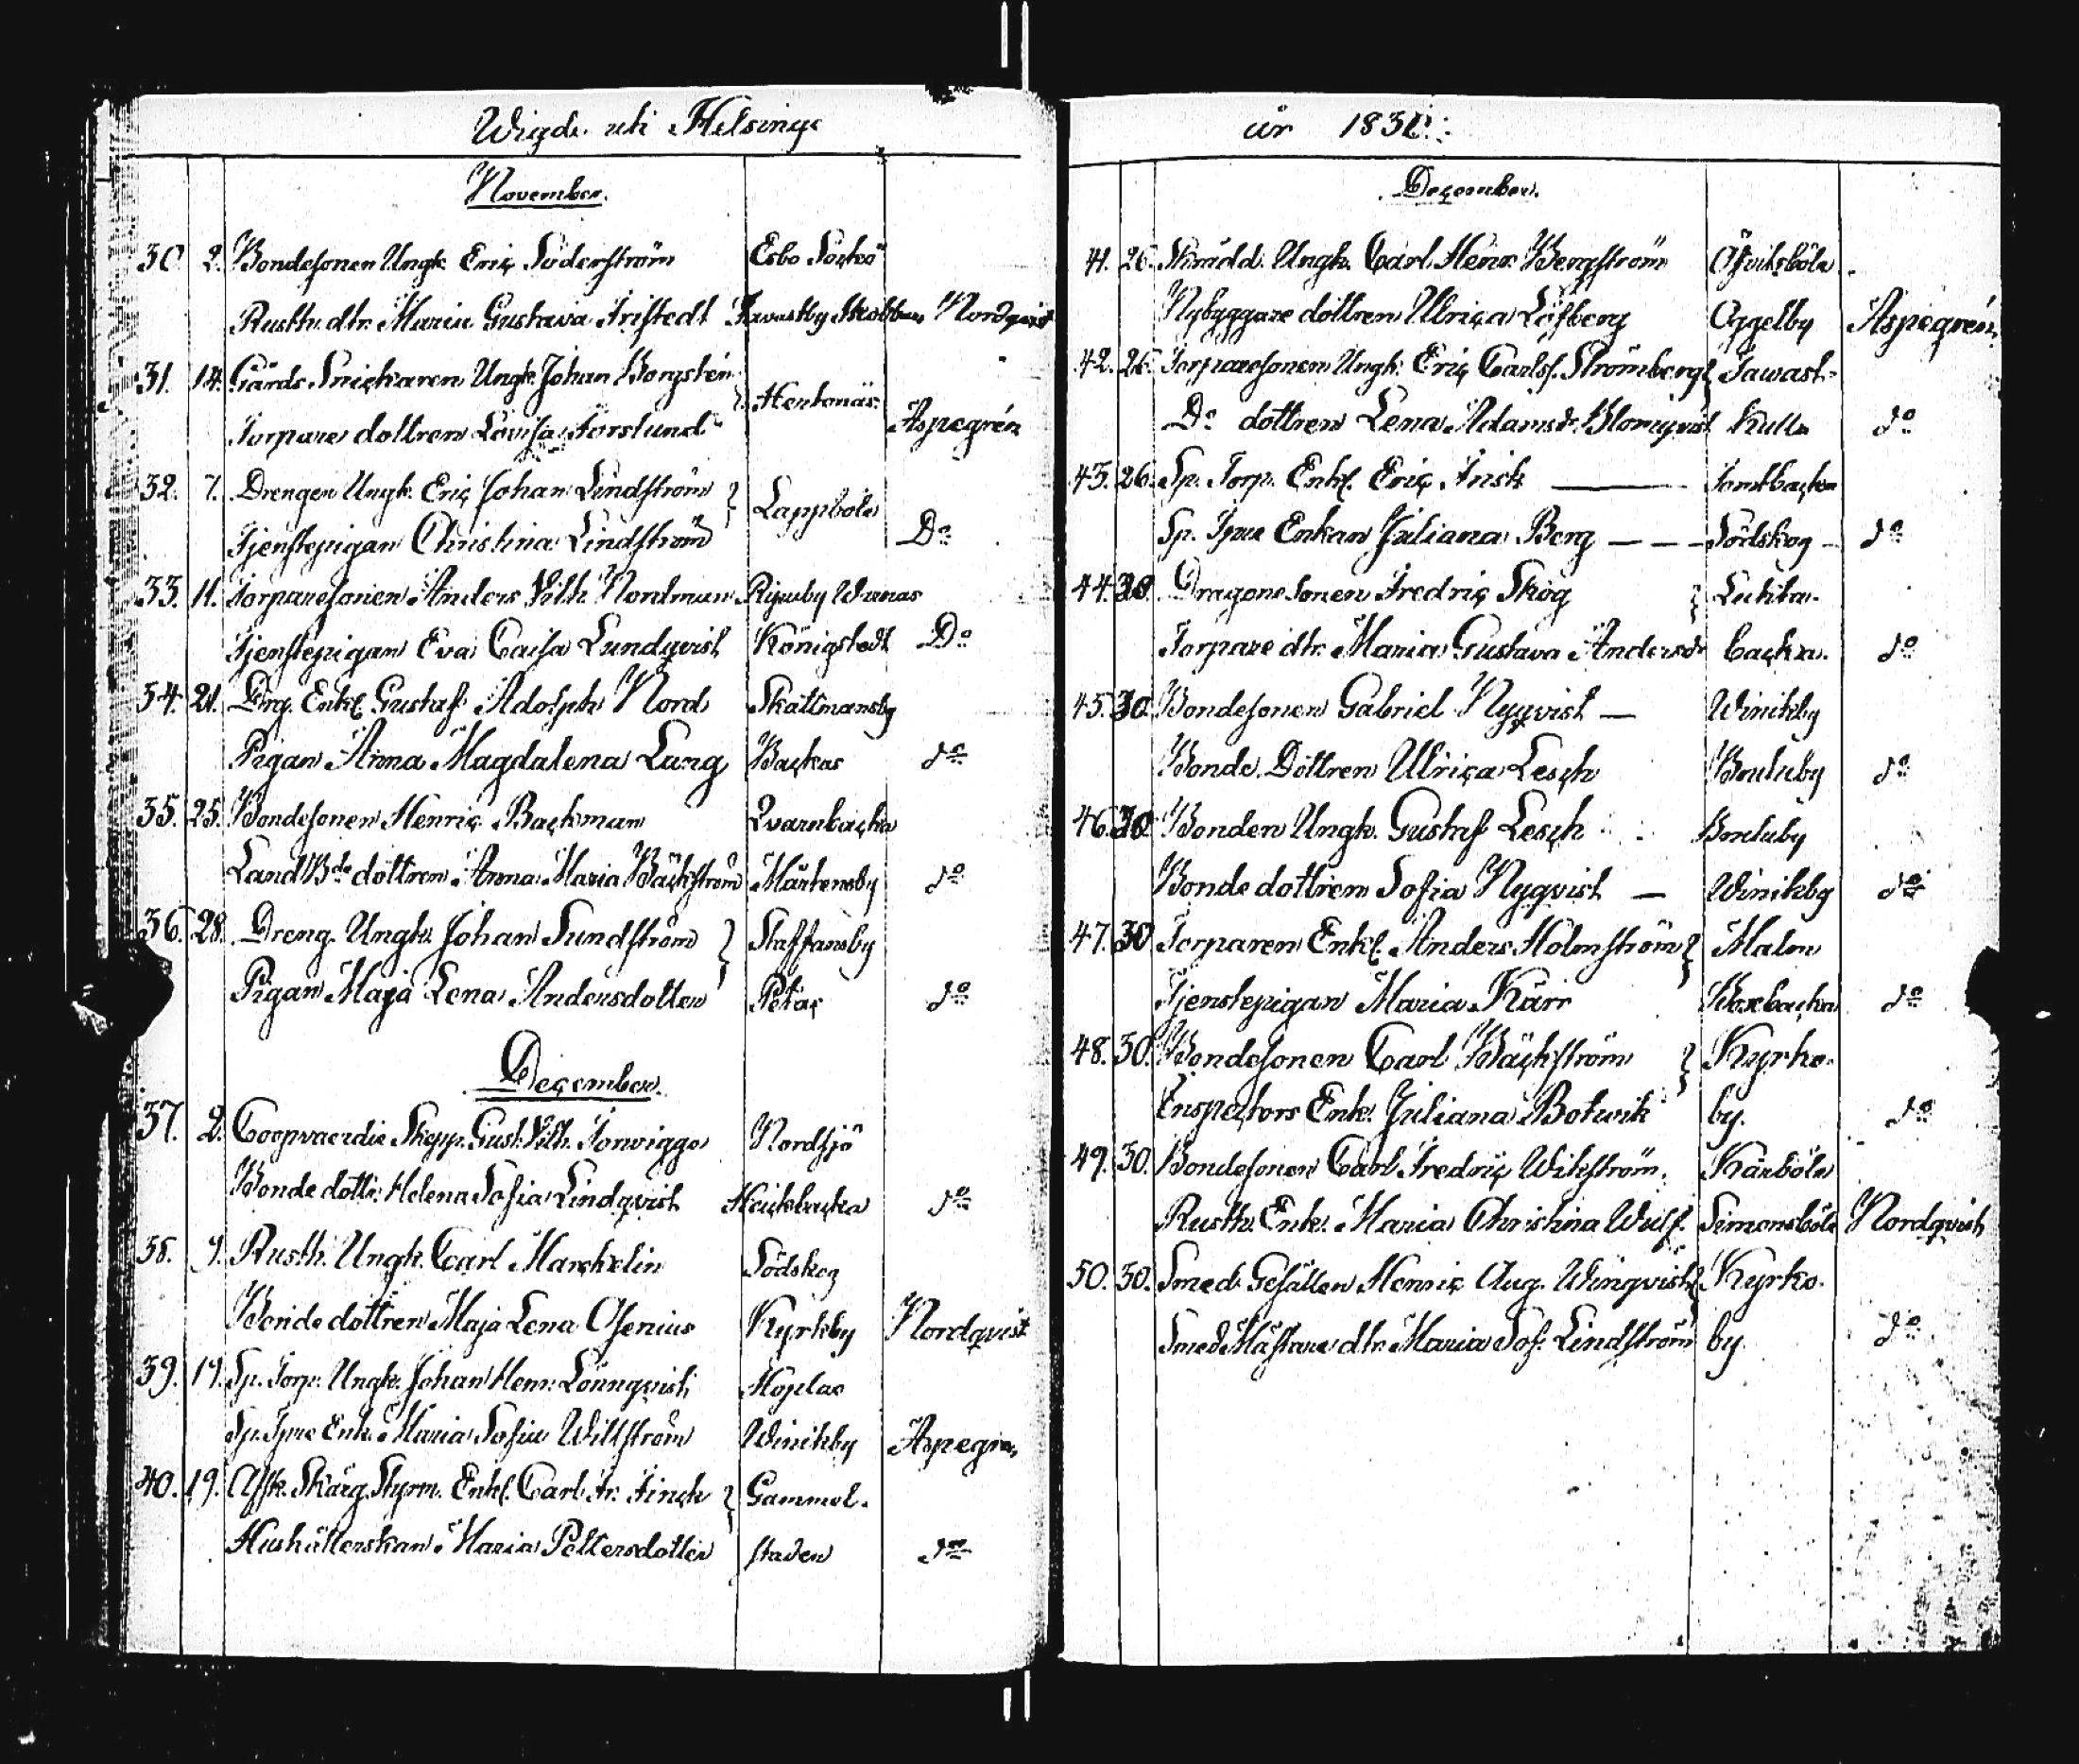 Wigde uti Helsinge
November.
30 2. Bondesonen Ungk. Eric Söderström Esbo Sökö
Rusth. dtr. Maria Gustava Fristedt Tavastby Nordqvist
31. 14. Gårds Snickaren Ungk. Johan Borgstén Hertonäs
Torpare dottren Lovisa Forslund Aspegrén
32. 7. Drengen Ungk. Eric Johan Lindström Lappböle
Tjenstepigan Christina Lindström Do
33. 11. Torparesonen Anders Vilh. Nordman
Tjenstepigan Eva Caisa Lundqvist Königstedt Do
34. 21. Drg. Enkl. Gustaf Adolph Nord Skattmansby
Pigan Anna Magdalena Lang Backas do
35. 25. Bondesonen Henric Backman Qvarnbacka
Land Bde dottren Anna Maria Bäckström Mårtensby do
36. 28. Dreng. Ungk. Johan Sundström Staffansby
Pigan Maja Lena Andersdotter Petas do
December.
37. 2. Coopvaerdie Skepp. Gust. Vilh. Nordsjö
Bonde dottr. Helena Sofia Lindqvist Heickbacka do
38. 9. Rusth. Ungk. Carl Marcklin Södskog
Bonde dottren Maja Lena Asenius Kyrkby Nordqvist
39. 19. Sp. Torp. Ungk. Johan Henr. Lönnqvist Hoplax
Sp. Tpre Enk. Maria Sofia Willström Winikby Aspegrén
40. 19. Afsk. Skärg. Styrm. Enkl. Carl Fr. Finck Gammel-
Hushållerskan Maria Pettersdotter staden do
år 183
December.
41. 26. Skrädd. Ungk. Carl Henr. Bergström Öfvitsböle
Nybyggare dottren Ulrica Löfberg Oggelby Aspegrén
42. 26. Torparesonen Ungk. Eric Carlss. Strömberg Tawast-
Do dottren Lena Adamsdr. Blomqvist kulla do
43. 26. Sp. Torp. Enkl. Eric Frisk — Tomtbacka
Sp. Tpre Enkan Juliana Berg — — — Södskog — do
44. 28. Dragone Sonen Fredric Skog
Torpare dtr. Maria Gustava Andersdr backa. do
45. 30. Bondesonen Gabriel Nyqvist — Winikby
Bonde Dottren Ulrica Lesch Boxluby do
46. 30 Bonden Ungk. Gustaf Lesch Boxluby
Bonde dottren Sofia Nyqvist — Winikby do
47. 30 Torparen Enkl. Anders Holmström Malm
Tjenstepigan Maria Kärr Boxbacka do
48. 30. Bondesonen Carl Bäckström Kyrko-
Inspectors Enk. Juliana Botwik by. do
49. 30. Bondesonen Carl Fredric Wikström. Kårböle
Rusth. Enk. Maria Christina Wulf. Simonsböle Nordqvist
50. 30. Smeds Gesällen Henric Aug. Winqvist Kyrko-
Smed Mästare dtr. Maria Sof. Lindström by do